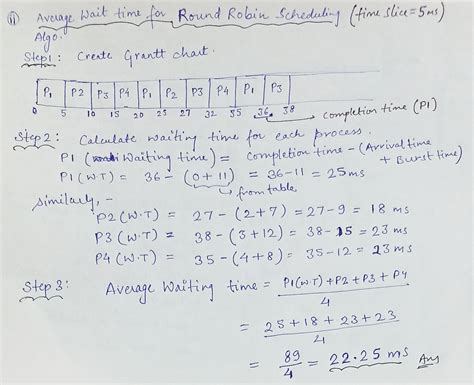 (ii) Average Wait time for Round Robin Scheduling (time slice = 5ms)
Algo.
Step1: Create Grantt chart.
P1 P2 P3 P4 P1 P2 P3 P4 P1 P3
0 5 10 15 20 25 27 32 35 36 38
completion time (P1)
Step2: Calculate waiting time for each process.
P1 (Waiting time) = Completion time - (Arrival time + Burst time)
P1 (WT) = 36 - (0+11) = 36-11 = 25ms
from table
Similarly, -
P2 (W.T) = 27 - (2+7) = 27-9 = 18 ms
P3 (W.T) = 38 - (3+12) = 38-15 = 23 ms
P4 (W.T) = 35 - (4+8) = 35-12 = 23 ms
Step 3: Average Waiting time = P1(WT) + P2 + P3 + P4
4
= 25+18+23+23
4
= 89/4 = 22.25 ms Ans